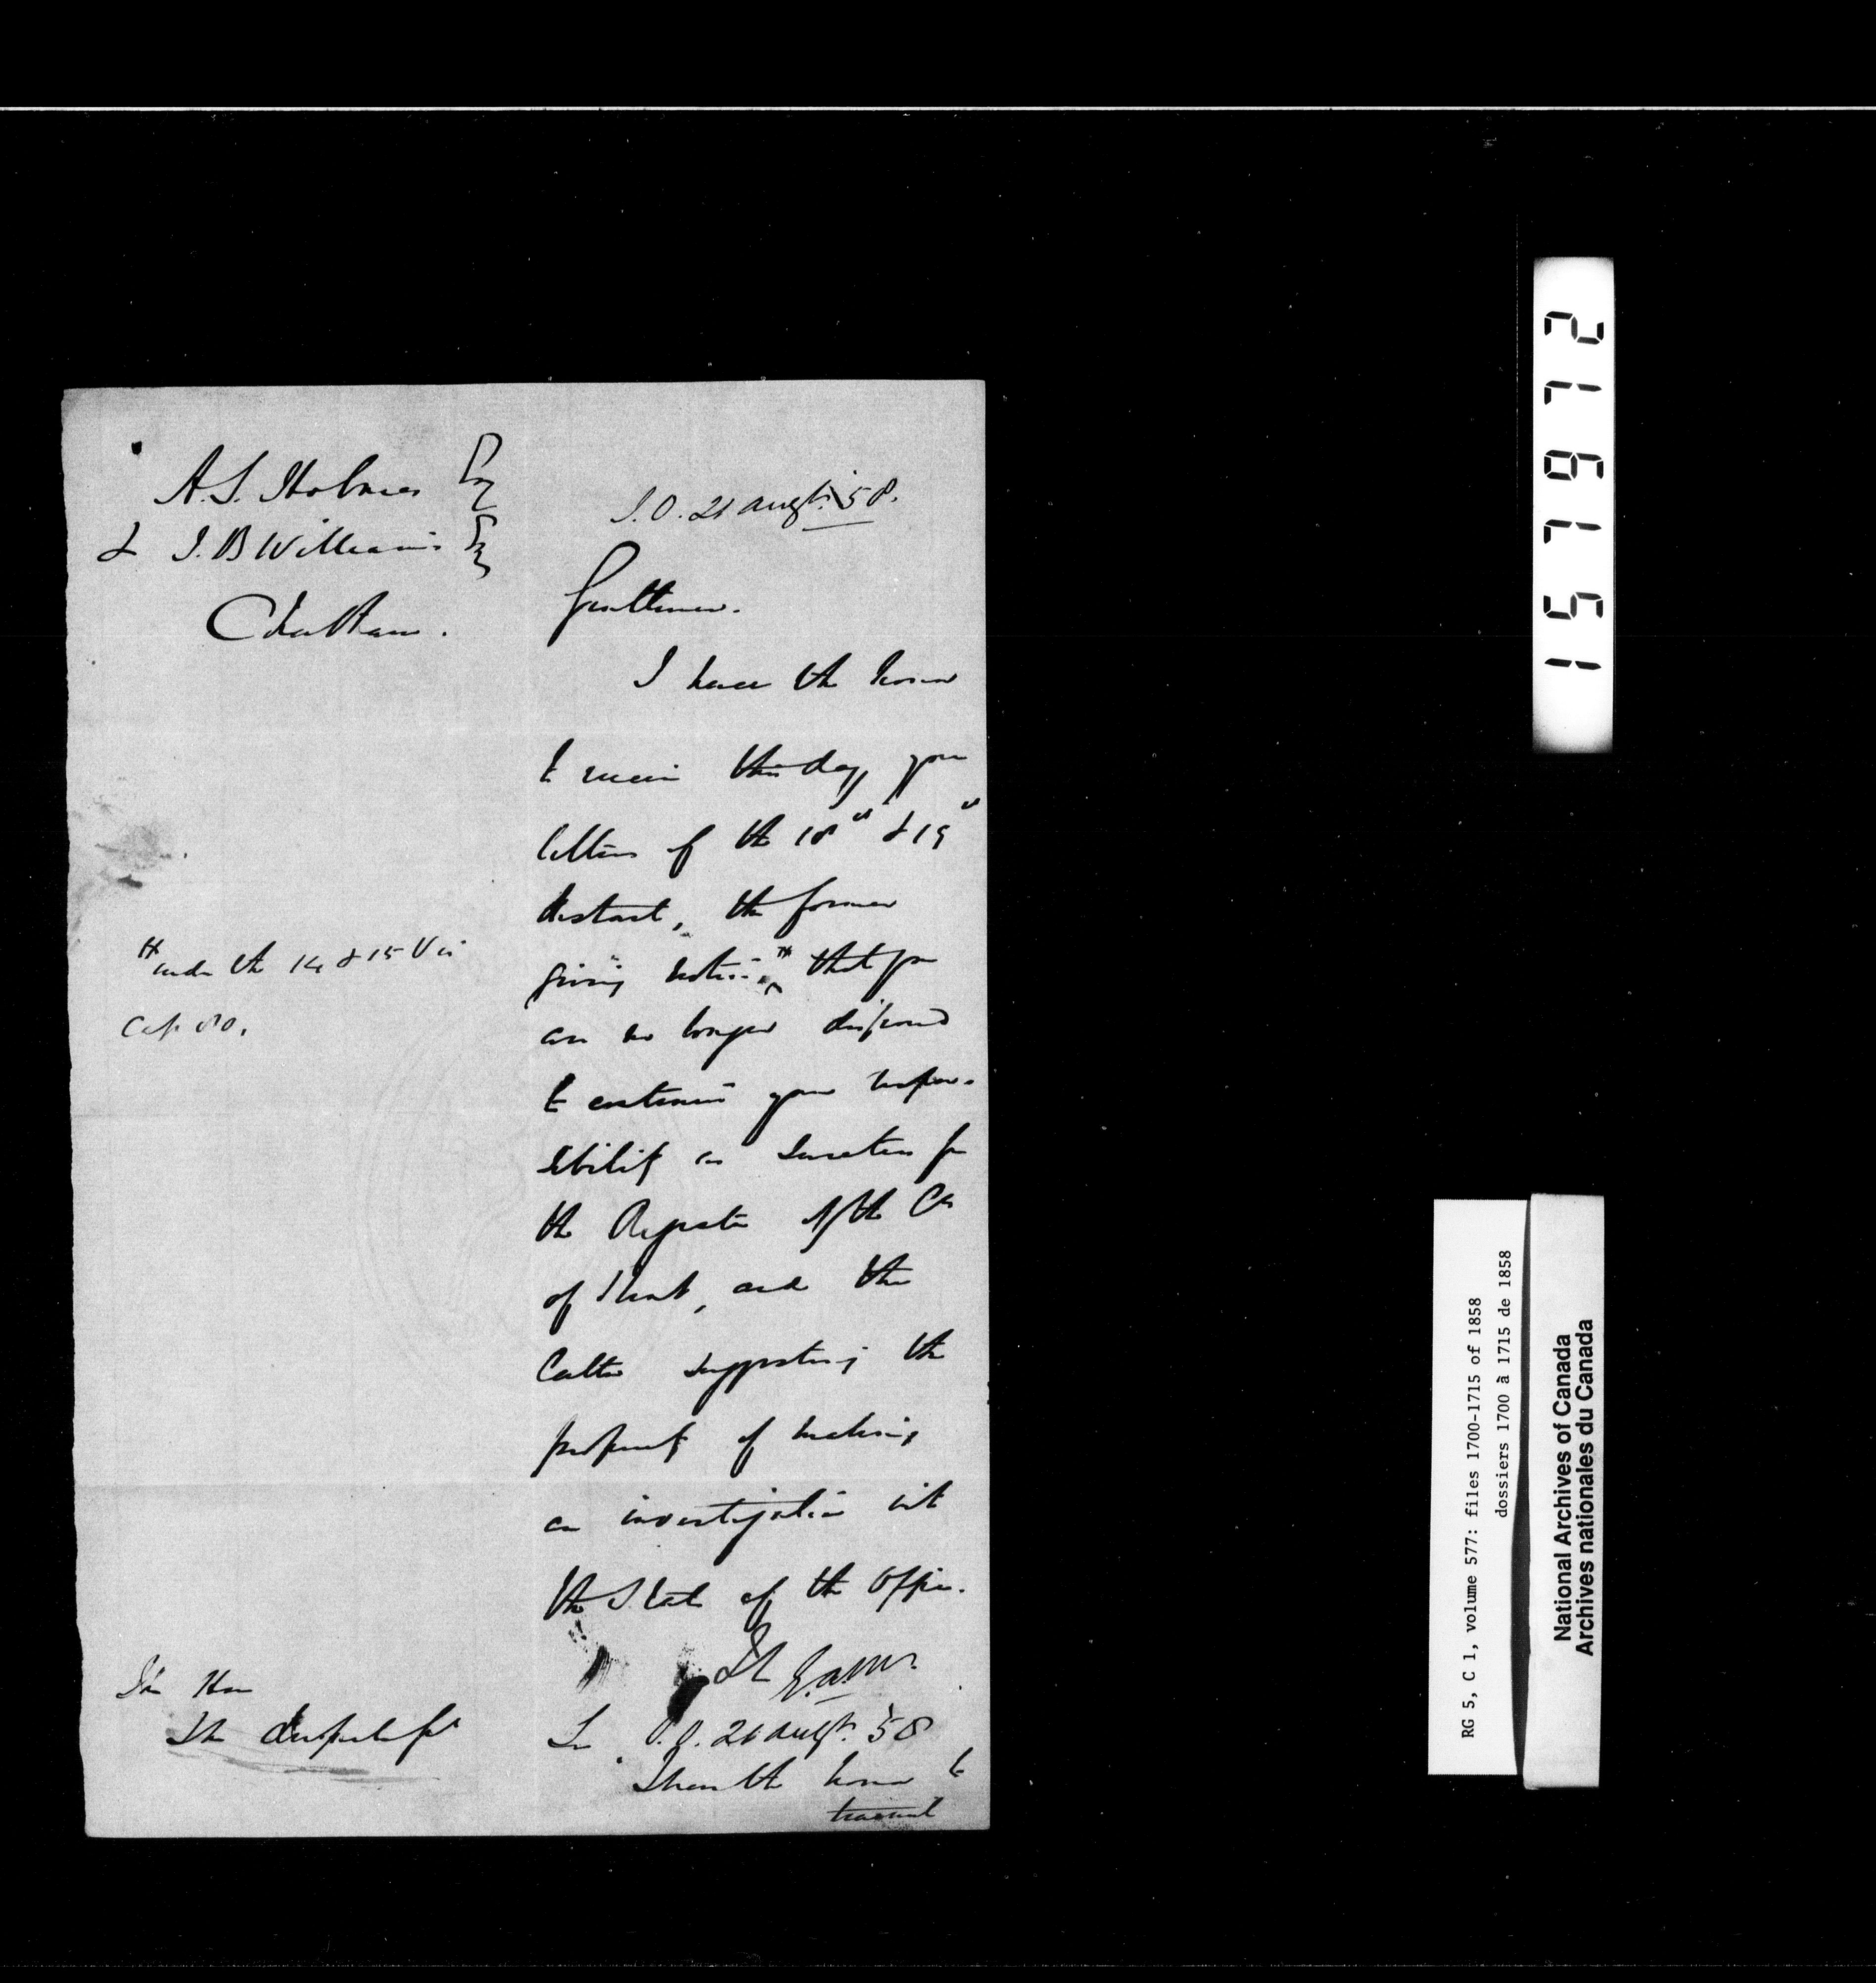 A.S. Holmes Esq
& J.B Williams Esq
Chatham.
S.O. 21 Augt. 58.
Gentlemen.
I have the honor
to receive this day your
letters of the 18th & 19th
Instant, the former
giving notice # that you
are no longer disposed
to continue your respon-
sibility as Sureties for
the Registrar of the Co
of Kent, and the
latter suggesting the
propriety of making
an investigation into
the State of the Office.
# under the 14 & 15 Vic
Cap 80.
E.A.M.
The Hon
The
Sir S.O. 21 Augt. 58
I have the honor to
transmit
21767151
RG 5, C 1, volume 577: files 1700-1715 of 1858
dossiers 1700 à 1715 de 1858
National Archives of Canada
Archives nationales du Canada